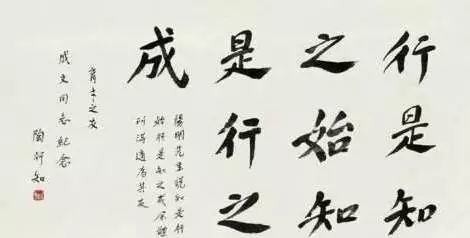 行是知
之始知
是行之
成
陽明先生說知是行
始行是知之成
育才之友
成文同志紀念
陶行知